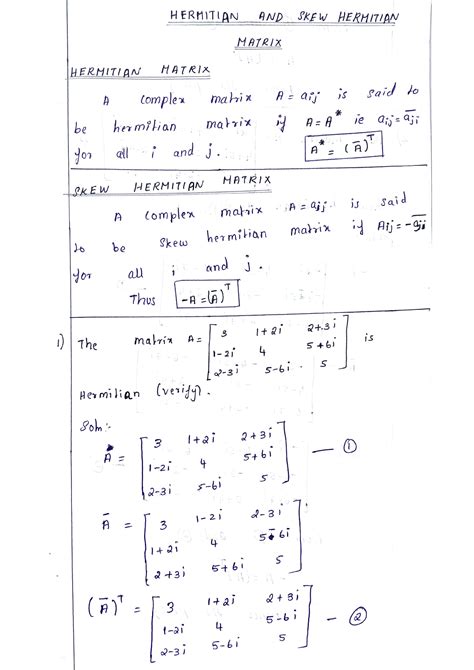 HERMITIAN AND SKEW HERMITIAN
MATRIX
HERMITIAN MATRIX
A complex matrix A = aij is said to
be hermitian matrix if A = A* ie aij = a̅j̅i̅
for all i and j. A* = (A̅)ᵀ
SKEW HERMITIAN MATRIX
A complex matrix A = aij is said
to be skew hermitian matrix if Aij = -a̅j̅i̅
for all i and j.
Thus -A = (A̅)ᵀ
1) The matrix A = [ 3 1+2i 2+3i
1-2i 4 5+6i
2-3i 5-6i 5 ] is
Hermitian (verify).
Soln:-
A = [ 3 1+2i 2+3i
1-2i 4 5+6i
2-3i 5-6i 5 ] — ①
A̅ = [ 3 1-2i 2-3i
1+2i 4 5-6i
2+3i 5+6i 5 ]
(A̅)ᵀ = [ 3 1+2i 2+3i
1-2i 4 5-6i
2-3i 5-6i 5 ] — ②